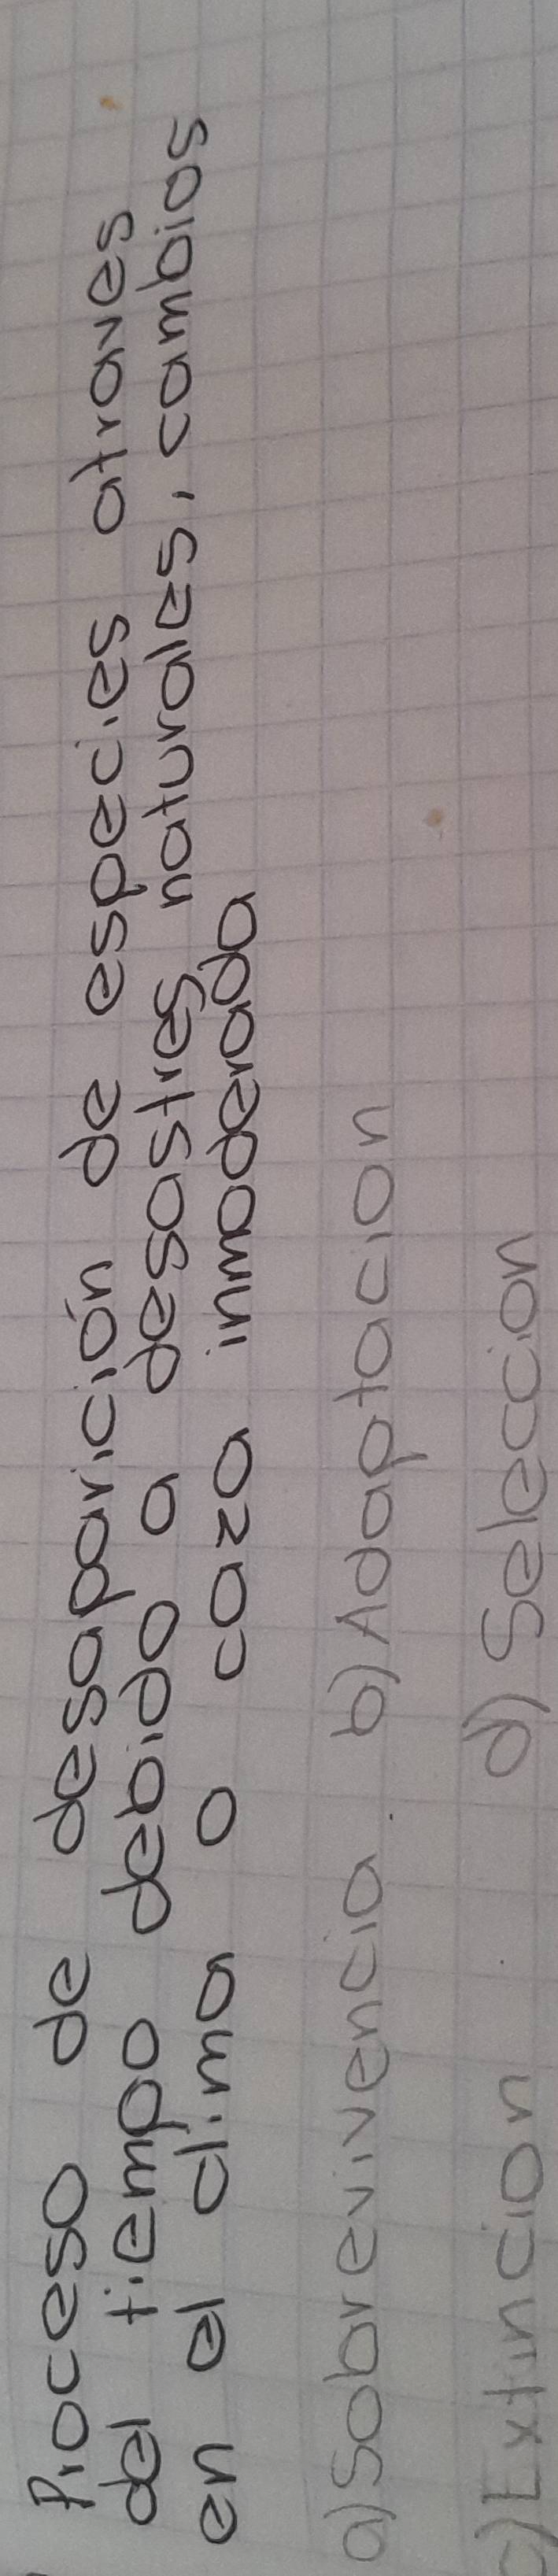 Proceso de desaparición de especies atraves
del tiempo debido a desastres naturales, cambios
en el clima o caza inmoderada
a) Sobrevivencia b) Adaptacion
c) Extincion d) Seleccion